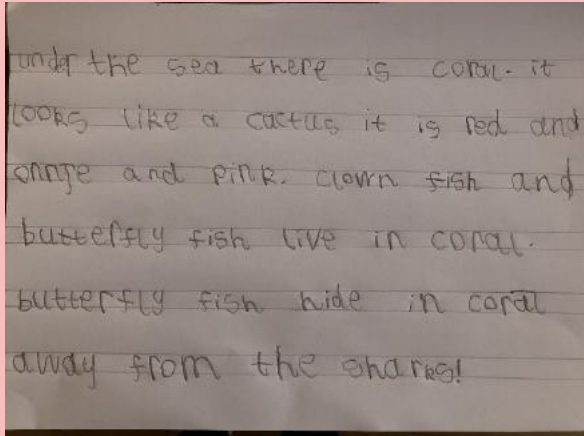 under the sea there is coral. it
looks like a cactus it is red and
onnje and pink. clown fish and
butterfly fish live in coral.
butterfly fish hide in coral
away from the sharks!